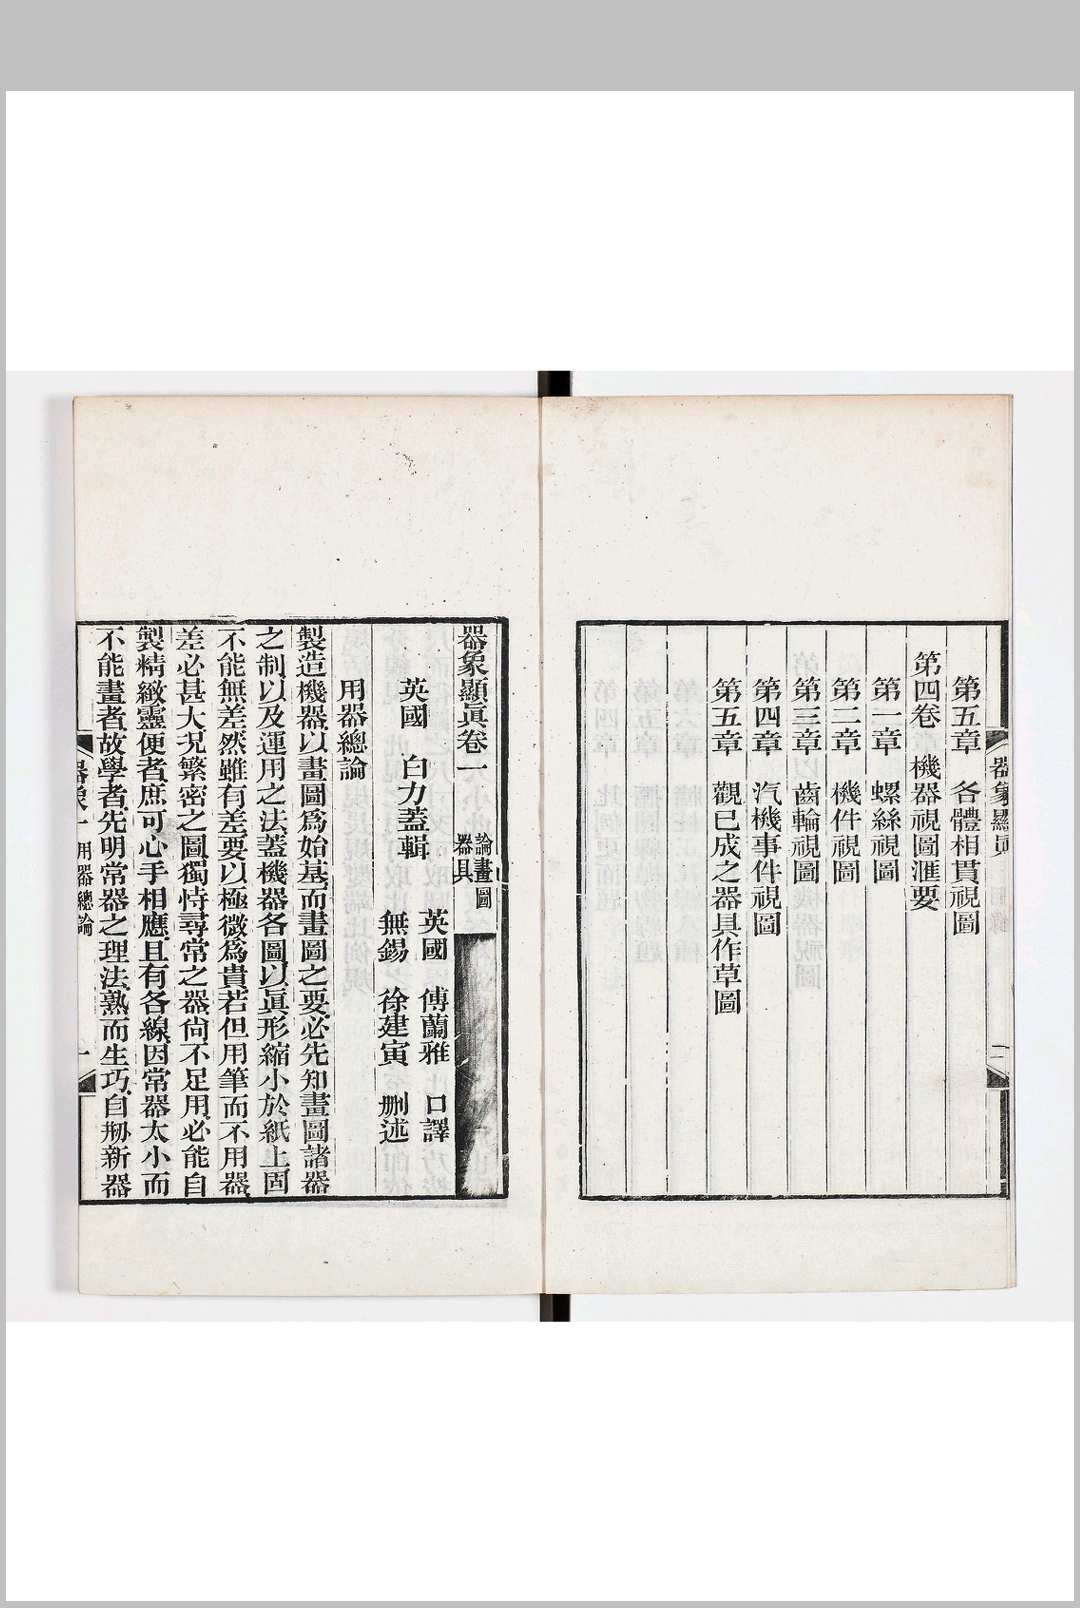 器象顯眞
第五章　各體相貫視圖
第四卷　機器視圖滙要
第一章　螺絲視圖
第二章　機件視圖
第三章　齒輪視圖
第四章　汽機事件視圖
第五章　觀已成之器具作草圖
器象顯眞卷一　論畫圖器具
英國　白力蓋輯
英國　傅蘭雅　口譯
無錫　徐建寅　刪述
用器總論
製造機器以畫圖爲始基而畫圖之要必先知畫圖諸器
之制以及運用之法蓋機器各圖以眞形縮小於紙上固
不能無差然雖有差要以極微爲貴若但用筆而不用器
差必甚大况繁密之圖獨恃尋常之器尙不足用必能自
製精緻靈便者庶可心手相應且有各線因常器太小而
不能畫者故學者先明常器之理法熟而生巧自剏新器
器象一　用器總論　一